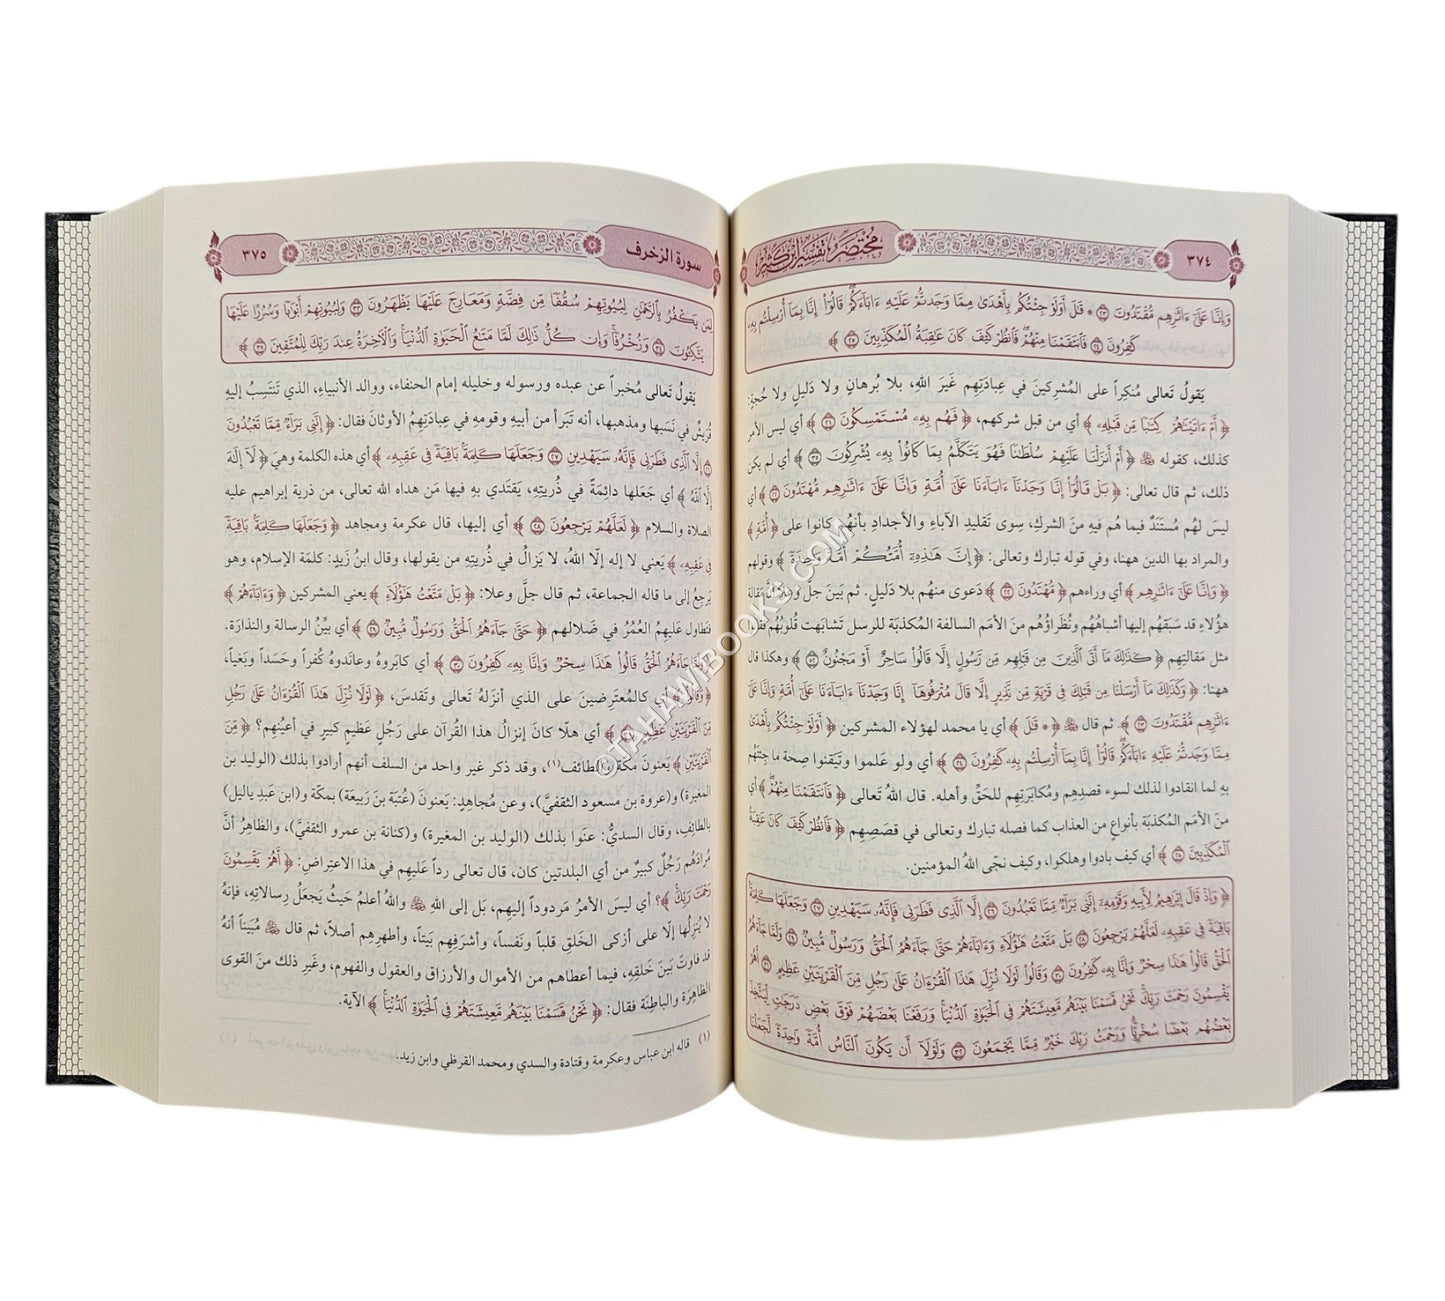 ٣٧٤
مختصر تفسير ابن كثير
وَإِنَّا عَلَىٰٓ ءَاثَٰرِهِم مُّقْتَدُونَ ٢٣ ۞ قَٰلَ أَوَلَوْ جِئْتُكُم بِأَهْدَىٰ مِمَّا وَجَدتُّمْ عَلَيْهِ ءَابَآءَكُمْ ۖ قَالُوٓا۟ إِنَّا بِمَآ أُرْسِلْتُم بِهِۦ
كَٰفِرُونَ ٢٤ فَٱنتَقَمْنَا مِنْهُمْ ۖ فَٱنظُرْ كَيْفَ كَانَ عَٰقِبَةُ ٱلْمُكَذِّبِينَ ٢٥ ﴾
يَقولُ تَعالى مُنكِراً على المُشرِكينَ في عِبادَتِهِم غَيرَ اللهِ، بلا بُرهانٍ ولا دَليلٍ ولا حُجةٍ:
﴿ أَمْ ءَاتَيْنَٰهُمْ كِتَٰبًا مِّن قَبْلِهِۦ ﴾ أي من قبل شركهم، ﴿ فَهُم بِهِۦ مُسْتَمْسِكُونَ ٢١ ﴾ أي ليس الأمر
كذلك، كقوله ﷻ ﴿ أَمْ أَنزَلْنَا عَلَيْهِمْ سُلْطَٰنًا فَهُوَ يَتَكَلَّمُ بِمَا كَانُوا۟ بِهِۦ يُشْرِكُونَ ٣٥ ﴾ أي لم يكن
ذلك، ثم قال تعالى: ﴿ بَلْ قَالُوٓا۟ إِنَّا وَجَدْنَآ ءَابَآءَنَا عَلَىٰٓ أُمَّةٍ وَإِنَّا عَلَىٰٓ ءَاثَٰرِهِم مُّهْتَدُونَ ٢٢ ﴾ أي
ليسَ لهُم مُستَنَدٌ فيما هُم فيهِ منَ الشركِ، سِوى تَقليدِ الآباءِ والأجدادِ بأنهُم كانوا على ﴿ أُمَّةٍ ﴾
والمراد بها الدين ههنا، وفي قوله تبارك وتعالى: ﴿ إِنَّ هَٰذِهِۦٓ أُمَّتُكُمْ أُمَّةً وَٰحِدَةً ﴾ وقولهم
﴿ وَإِنَّا عَلَىٰٓ ءَاثَٰرِهِم ﴾ أي وراءهم ﴿ مُّهْتَدُونَ ٢٢ ﴾ دَعوى منهُم بلا دَليلٍ. ثم بَينَ جل وعلا أنَّ مَقالةَ
هؤلاءِ قد سَبَقهُم إليها أشباهُهُم ونُظَراؤُهُم منَ الأمَم السالفة المُكذبَة للرسل تَشابَهت قُلوبُهُم فَقالوا
مثل مَقالتِهِم ﴿ كَذَٰلِكَ مَآ أَتَى ٱلَّذِينَ مِن قَبْلِهِم مِّن رَّسُولٍ إِلَّا قَالُوا۟ سَاحِرٌ أَوْ مَجْنُونٌ ٥٢ ﴾ وهكذا قال
ههنا: ﴿ وَكَذَٰلِكَ مَآ أَرْسَلْنَا مِن قَبْلِكَ فِى قَرْيَةٍ مِّن نَّذِيرٍ إِلَّا قَالَ مُتْرَفُوهَآ إِنَّا وَجَدْنَآ ءَابَآءَنَا عَلَىٰٓ أُمَّةٍ وَإِنَّا عَلَىٰٓ
ءَاثَٰرِهِم مُّقْتَدُونَ ٢٣ ﴾. ثم قال ﷻ ﴿ ۞ قُلْ ﴾ أي يا محمد لهؤلاء المشركين ﴿ أَوَلَوْ جِئْتُكُم بِأَهْدَىٰ
مِمَّا وَجَدتُّمْ عَلَيْهِ ءَابَآءَكُمْ ۖ قَالُوٓا۟ إِنَّا بِمَآ أُرْسِلْتُم بِهِۦ كَٰفِرُونَ ٢٤ ﴾ أي ولو عَلموا وتَيَقنوا صِحة ما جِئتَهُم
بِهِ لما انقادوا لذلك لسوء قصدِهِم ومُكابَرتِهِم للحَقِّ وأهله. قال اللهُ تَعالى ﴿ فَٱنتَقَمْنَا مِنْهُمْ ۖ ﴾ أي
منَ الأمَم المُكذبَة بأنواعٍ من العذاب كما فصله تبارك وتعالى في قصَصِهِم ﴿ فَٱنظُرْ كَيْفَ كَانَ عَٰقِبَةُ
ٱلْمُكَذِّبِينَ ٢٥ ﴾ أي كيف بادوا وهلكوا، وكيف نجّى اللهُ المؤمنين.
﴿ وَإِذْ قَالَ إِبْرَٰهِيمُ لِأَبِيهِ وَقَوْمِهِۦٓ إِنَّنِى بَرَآءٌ مِّمَّا تَعْبُدُونَ ٢٦ إِلَّا ٱلَّذِى فَطَرَنِى فَإِنَّهُۥ سَيَهْدِينِ ٢٧ وَجَعَلَهَا كَلِمَةًۢ
بَاقِيَةً فِى عَقِبِهِۦ لَعَلَّهُمْ يَرْجِعُونَ ٢٨ بَلْ مَتَّعْتُ هَٰٓؤُلَآءِ وَءَابَآءَهُمْ حَتَّىٰ جَآءَهُمُ ٱلْحَقُّ وَرَسُولٌ مُّبِينٌ ٢٩ وَلَمَّا جَآءَهُمُ
ٱلْحَقُّ قَالُوا۟ هَٰذَا سِحْرٌ وَإِنَّا بِهِۦ كَٰفِرُونَ ٣٠ وَقَالُوا۟ لَوْلَا نُزِّلَ هَٰذَا ٱلْقُرْءَانُ عَلَىٰ رَجُلٍ مِّنَ ٱلْقَرْيَتَيْنِ عَظِيمٍ ٣١ أَهُمْ
يَقْسِمُونَ رَحْمَتَ رَبِّكَ ۚ نَحْنُ قَسَمْنَا بَيْنَهُم مَّعِيشَتَهُمْ فِى ٱلْحَيَوٰةِ ٱلدُّنْيَا ۚ وَرَفَعْنَا بَعْضَهُمْ فَوْقَ بَعْضٍ دَرَجَٰتٍ لِّيَتَّخِذَ
بَعْضُهُم بَعْضًا سُخْرِيًّا ۗ وَرَحْمَتُ رَبِّكَ خَيْرٌ مِّمَّا يَجْمَعُونَ ٣٢ وَلَوْلَآ أَن يَكُونَ ٱلنَّاسُ أُمَّةً وَٰحِدَةً لَّجَعَلْنَا
سورة الزخرف
٣٧٥
لِمَن يَكْفُرُ بِٱلرَّحْمَٰنِ لِبُيُوتِهِمْ سُقُفًا مِّن فِضَّةٍ وَمَعَارِجَ عَلَيْهَا يَظْهَرُونَ ٣٣ وَلِبُيُوتِهِمْ أَبْوَٰبًا وَسُرُرًا عَلَيْهَا
يَتَّكِـُٔونَ ٣٤ وَزُخْرُفًا ۚ وَإِن كُلُّ ذَٰلِكَ لَمَّا مَتَٰعُ ٱلْحَيَوٰةِ ٱلدُّنْيَا ۚ وَٱلْءَاخِرَةُ عِندَ رَبِّكَ لِلْمُتَّقِينَ ٣٥ ﴾
يَقولُ تَعالى مُخبراً عن عبده ورسوله وخليله إمام الحنفاء، ووالد الأنبياء، الذي تَنتَسِبُ إليهِ
قُرَيشٌ في نَسَبها ومذهبها، أنه تَبَرأ من أبيهِ وقومه في عِبادَتِهِمُ الأوثانَ فقال: ﴿ إِنَّنِى بَرَآءٌ مِّمَّا تَعْبُدُونَ
٢٦ إِلَّا ٱلَّذِى فَطَرَنِى فَإِنَّهُۥ سَيَهْدِينِ ٢٧ وَجَعَلَهَا كَلِمَةًۢ بَاقِيَةً فِى عَقِبِهِۦ ﴾ أي هذه الكلمة وهيَ ﴿ لَآ إِلَٰهَ
إِلَّا ٱللَّهُ ﴾ أي جَعَلها دائِمَةً في ذُريتِهِ، يَقتَدي به فيها مَن هداه الله تعالى، من ذرية إبراهيم عليه
الصلاة والسلام ﴿ لَعَلَّهُمْ يَرْجِعُونَ ٢٨ ﴾ أي إليها، قال عكرمة ومجاهد ﴿ وَجَعَلَهَا كَلِمَةًۢ بَاقِيَةً
فِى عَقِبِهِۦ ﴾ يَعني لا إله إلّا اللهُ، لا يَزالُ في ذُريتِهِ من يقولها، وقال ابنُ زَيدٍ: كلمَة الإسلام، وهو
يَرجِعُ إلى ما قاله الجماعة، ثم قال جلَّ وعلا: ﴿ بَلْ مَتَّعْتُ هَٰٓؤُلَآءِ ﴾ يعني المشركين ﴿ وَءَابَآءَهُمْ ﴾
فتَطاول عَليهِمُ العُمُرُ في ضَلالهم ﴿ حَتَّىٰ جَآءَهُمُ ٱلْحَقُّ وَرَسُولٌ مُّبِينٌ ٢٩ ﴾ أي بيِّنُ الرسالة والنذارَة.
﴿ وَلَمَّا جَآءَهُمُ ٱلْحَقُّ قَالُوا۟ هَٰذَا سِحْرٌ وَإِنَّا بِهِۦ كَٰفِرُونَ ٣٠ ﴾ أي كابَروهُ وعانَدوهُ كُفراً وحَسَداً وبَغياً،
﴿ وَقَالُوا۟ ﴾ أي كالمُعتَرِضينَ على الذي أنزَلهُ تَعالى وتَقدسَ، ﴿ لَوْلَا نُزِّلَ هَٰذَا ٱلْقُرْءَانُ عَلَىٰ رَجُلٍ
مِّنَ ٱلْقَرْيَتَيْنِ عَظِيمٍ ٣١ ﴾ أي هلّا كانَ إنزالُ هذا القُرآن على رَجُلٍ عَظيمٍ كبيرٍ في أعيُنِهِم؟ ﴿ مِّنَ
ٱلْقَرْيَتَيْنِ ﴾ يَعنونَ مَكّة والطائف(١)، وقد ذكر غير واحد من السلف أنهم أرادوا بذلك (الوليد بن
المغيرة) و(عروة بن مسعود الثقفيّ)، وعن مُجاهدٍ: يَعنونَ (عُتبَة بنَ رَبيعَة) بمكّة و(ابن عَبدِ ياليل)
بالطائف، وقال السديُّ: عنَوا بذلك (الوليد بن المغيرة) و(كنانة بن عمرو الثقفيّ)، والظاهِرُ أنَّ
مُرادَهُم رَجُلٌ كبيرٌ من أي البلدتين كان، قال تعالى رداً عَليهم في هذا الاعتِراضِ: ﴿ أَهُمْ يَقْسِمُونَ
رَحْمَتَ رَبِّكَ ۚ ﴾؟ أي ليسَ الأمرُ مَردوداً إليهم، بَل إلى اللهِ ﷻ واللهُ أعلمُ حَيثُ يَجعَلُ رِسالاتِهِ، فإنهُ
لا يُنزِلُها إلّا على أزكى الخَلقِ قَلباً ونَفساً، وأشرَفِهِم بَيتاً، وأطهرِهِم أصلاً، ثم قال ﷻ مُبَيناً أنهُ
قد فاوتَ بَينَ خَلقِهِ، فيما أعطاهم من الأموال والأرزاق والعقول والفهوم، وغَيرِ ذلك منَ القوى
الظاهِرَة والباطِنَة فقال: ﴿ نَحْنُ قَسَمْنَا بَيْنَهُم مَّعِيشَتَهُمْ فِى ٱلْحَيَوٰةِ ٱلدُّنْيَا ۚ ﴾ الآية.
(١) قاله ابن عباس وعكرمة وقتادة والسدي ومحمد القرظي وابن زيد.
© TAHAWIBOOKS.COM